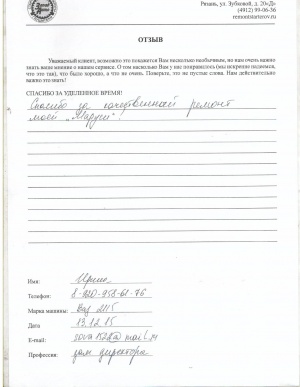 Рязань, ул. Зубковой, д. 20«Д»
(4912) 99-06-36
remontstarterov.ru
ОТЗЫВ
Уважаемый клиент, возможно это покажется Вам несколько необычным, но нам очень важно
знать ваше мнение о нашем сервисе. О том насколько Вам у нас понравилось (мы искренне надеемся,
что это так), что было хорошо, а что не очень. Поверьте, это не пустые слова. Нам действительно
важно это знать!
СПАСИБО ЗА УДЕЛЕННОЕ ВРЕМЯ!
Спасибо за качественный ремонт
моей „Маруси"!
Имя: Ирина
Телефон: 8-920-958-61-76
Марка машины: Ваз 2115
Дата 13.12.15
E-mail:
Профессия: зам директора